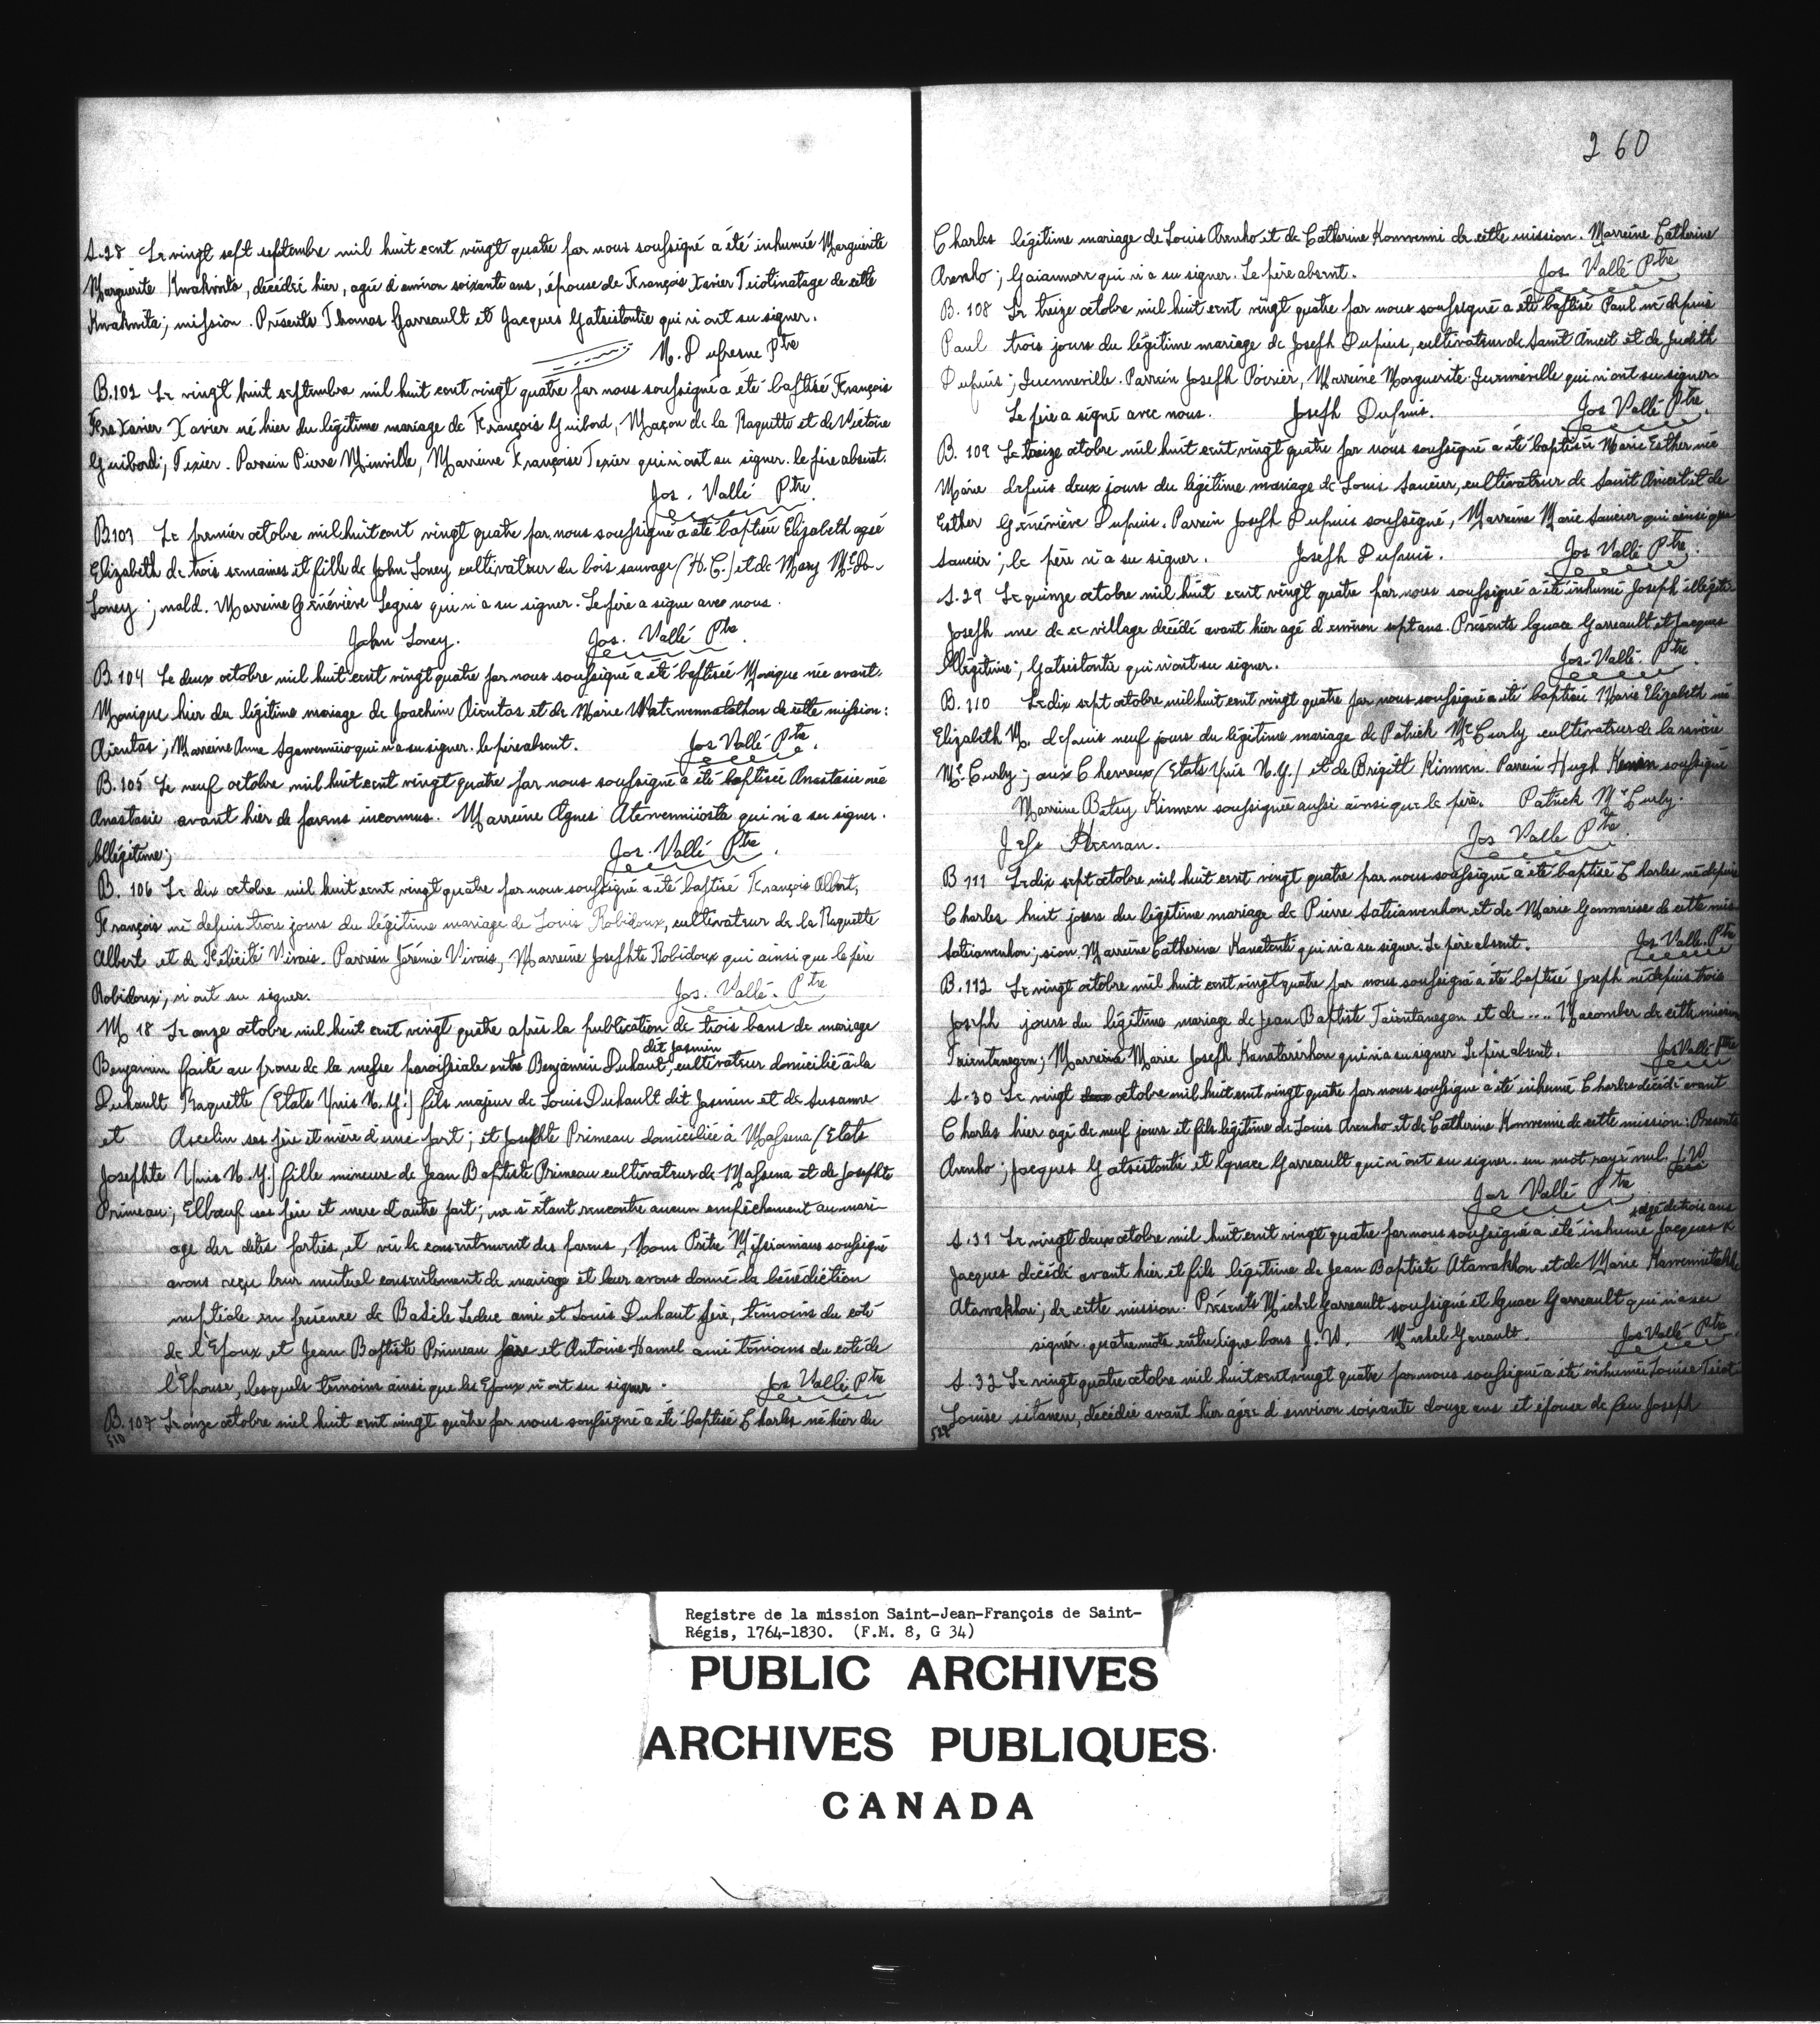 S.28 Le vingt sept septembre mil huit cent vingt quatre par nous soussigné a été inhumée Marguerite
Marguerite Kwakwité, décédée hier, agée d'environ soixante ans, épouse de François Xavier Teiotinatage de cette
Kwakwita; mission. Présents Thomas Garreault et Jacques Gatsistontie qui n'ont su signer.
N. Dufresne Ptre
B.102 Le vingt huit septembre mil huit cent vingt quatre par nous soussigné a été baptisé François
Frs Xavier Xavier né hier du légitime mariage de François Guibord, Maçon de la Raquette et de Victoire
Guibord; Texier. Parrein Pierre Minville, Marreine Françoise Texier qui n'ont su signer. le père absent.
Jos. Vallé Ptre.
B103 Le premier octobre mil huit cent vingt quatre par nous soussigné a été baptisée Elizabeth agée
Elizabeth de trois semaines et fille de John Loney cultivateur du bois sauvage (H.C.) et de Mary McDo-
Loney; nald. Marreine Généviève Legris qui n'a su signer. Le père a signé avec nous.
John Loney. Jos. Vallé Ptre.
B.104 Le deux octobre mil huit cent vingt quatre par nous soussigné a été baptisée Monique née avant
Monique hier du légitime mariage de Joachim Aientas et de Marie Watewennalathon de cette mission:
Aientas; Marreine Anne qui n'a su signer. le père absent. Jos Vallé Ptre.
B.105 Le neuf octobre mil huit cent vingt quatre par nous soussigné a été baptisée Anastasie née
Anastasie avant hier de parens inconnus. Marreine Agnes Atewenniiosta qui n'a su signer.
Illégitime; Jos. Vallé Ptre.
B. 106 Le dix octobre mil huit cent vingt quatre par nous soussigné a été baptisé François Albert,
François né depuis trois jours du légitime mariage de Louis Robidoux, cultivateur de la Raquette
Albert et de Félicité Vivais. Parrein Jérémie Vivais, Marreine Josephte Robidoux qui ainsi que le père
Robidoux; n'ont su signer. Jos. Vallé. Ptre
M 18 Le onze octobre mil huit cent vingt quatre après la publication de trois bans de mariage
dit Jasmin
Benjamin faite au prone de la messe paroissiale entre Benjamin Duhaut, cultivateur domicilié à la
Duhault Raquette (Etats Unis N.Y.) fils majeur de Louis Duhault dit Jasmin et de Susanne
et Ascelin ses père et mère d'une part; et Josephte Primeau domiciliée à Massena (Etats
Josephte Unis N.Y.) fille mineure de Jean Baptiste Primeau cultivateur de Massena et de Josephte
Primeau; Elbœuf ses père et mere d'autre part; ne s'étant rencontré aucun empêchement au mari-
age des dites parties, et vû le consentement des parens, Nous Prêtre Missionnaire soussigné
avons reçu leur mutuel consentement de mariage et leur avons donné la bénédiction
nuptiale en présence de Basile Leduc ami et Louis Duhaut père, témoins du coté
de l'Epoux et Jean Baptiste Primeau père et Antoine Hamel ami témoins du coté de
l'Epouse, lesquels témoins ainsi que les Epoux n'ont su signer. Jos Vallé Ptre
B.107 Le onze octobre mil huit cent vingt quatre par nous soussigné a été baptisé Charles né hier du
510
260
Charles légitime mariage de Louis Arenho et de Catherine Konwenni de cette mission. Marreine Catherine
Arenho; Gaianmore qui n'a su signer. Le père absent. Jos Vallé Ptre
B. 108 Le treize octobre mil huit cent vingt quatre par nous soussigné a été baptisé Paul né depuis
Paul trois jours du légitime mariage de Joseph Dupuis, cultivateur de Saint Anicet et de Judith
Dupuis; Quenneville. Parrein Joseph Poirier, Marreine Marguerite Quenneville qui n'ont su signer
Le père a signé avec nous. Joseph Dupuis. Jos Vallé Ptre.
B. 109 Le treize octobre mil huit cent vingt quatre par nous soussigné a été baptisée Marie Esther née
Marie depuis deux jours du légitime mariage de Louis Saucier, cultivateur de Saint Anicet et de
Esther Généviève Dupuis. Parrein Joseph Dupuis soussigné, Marreine Marie Saucier qui ainsi que
Saucier; le père n'a su signer. Joseph Dupuis. Jos Vallé Ptre.
S.29 Le quinze octobre mil huit cent vingt quatre par nous soussigné a été inhumé Joseph illégiti-
Joseph me de ce village décédé avant hier agé d'environ sept ans. Présents Ignace Garreault et Jacques
Illégitime; Gatsistontie qui n'ont su signer. Jos. Vallé. Ptre.
B. 110 Le dix sept octobre mil huit cent vingt quatre par nous soussigné a été baptisée Marie Elizabeth née
Elizabeth M. depuis neuf jours du légitime mariage de Patrick McCurly cultivateur de la rivière
McCurly; aux Chevreux (Etats Unis N.Y.) et de Brigitt Kinnen. Parrein Hugh soussigné
Marreine Betsy Kinnen soussignée aussi ainsi que le père. Patrick McCurly.
Heenan. Jos Vallé Ptre.
B 111 Le dix sept octobre mil huit cent vingt quatre par nous soussigné a été baptisé Charles né depuis
Charles huit jours du légitime mariage de Pierre Sateiawenhon et de Marie Gonnariese de cette mis-
Sateiawenhon; sion. Marreine Catherine Kanatenti qui n'a su signer. Le père absent. Jos. Vallé. Ptre
B.112 Le vingt octobre mil huit cent vingt quatre par nous soussigné a été baptisé Joseph né depuis trois
Joseph jours du légitime mariage de Jean Baptiste Taientanegen et de .... Macomber de cette mission
Taientanegen; Marreine Marie Joseph Kanatarérhon qui n'a su signer Le père absent. Jos Vallé Ptre
S.30 Le vingt octobre mil huit cent vingt quatre par nous soussigné a été inhumé Charles décédé avant
Charles hier agé de neuf jours et fils légitime de Louis Arenho et de Catherine Konwenni de cette mission: Présents
Arenho; Jacques Gatsistontie et Ignace Garreault qui n'ont su signer. un mot rayé nul. J.V.
Jos Vallé Ptre
agé de trois ans
S.31 Le vingt deux octobre mil huit cent vingt quatre par nous soussigné a été inhumé Jacques
Jacques décédé avant hier et fils légitime de Jean Baptiste Atawakhon et de Marie
Atawakhon; de cette mission. Présents Michel Garreault soussigné et Ignace Garreault qui n'a su
signer quatre mots entre ligne bons J.V. Michel Gareault. Jos Vallé Ptre.
S.32 Le vingt quatre octobre mil huit cent vingt quatre par nous soussigné a été inhumée Louise Teiot
Louise sitaneu, décédée avant hier agée d'environ soixante douze ans et épouse de feu Joseph
Registre de la mission Saint-Jean-François de Saint-
Régis, 1764-1830. (F.M. 8, G 34)
PUBLIC ARCHIVES
ARCHIVES PUBLIQUES
CANADA